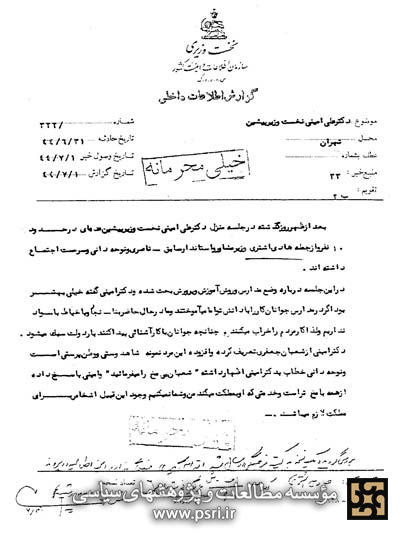 نخست وزیری
سازمان اطلاعات و امنیت کشور
س.ا.و.ا.ک
گزارش اطلاعات داخلی
موضوع : دکتر علی امینی نخست وزیر پیشین
محل : تهران
عطف بشماره :
منبع خبر : ۳۳
تقویم :
شماره : ۳۲۲/
تاریخ حادثه : ۴۴/۶/۳۱
تاریخ وصول خبر : ۴۴/۷/۱
تاریخ گزارش : ۴۴/۷/۱
خیلی محرمانه
بعد از ظهر روز گذشته در جلسه منزل دکتر علی امینی نخست وزیر پیشین عده‌ای در حدود
۱۰ نفر از جمله هادی اشتری وزیر مشاور و استاندار سابق – ناصری و نوحه دانی و سرمست اجتماع
داشته اند .
در این جلسه در باره وضع مدارس و روش آموزش و پرورش بحث شده و دکتر امینی گفته خیلی بهتر
بود اگر در مدارس جوانان کار را با دانش توأما میآموختند و ما در حال حاضر بنا – نجار و یا خیاط با سواد
نداریم ولذا کار مردم را خراب میکنند . چنانچه جوانان با کار آشنائی پیدا کنند بار دولت سبک میشود .
دکتر امینی از شعبان جعفری تعریف کرده و افزوده این مرد نمونه شاهدوستی و وطن پرستی است
و نوحه دانی خطاب به دکتر امینی اظهار داشته " شعبان بی مخ را میفرمائید " و امینی پاسخ داده
از همه با مخ تر است و خدمتی که او بمملکت میکند من و شما نمیکنیم و وجود این قبیل اشخاص برای
مملکت لازم میباشد . –
خیلی محرمانه
مؤسسه مطالعات و پژوهشهای سیاسی
www.psri.ir